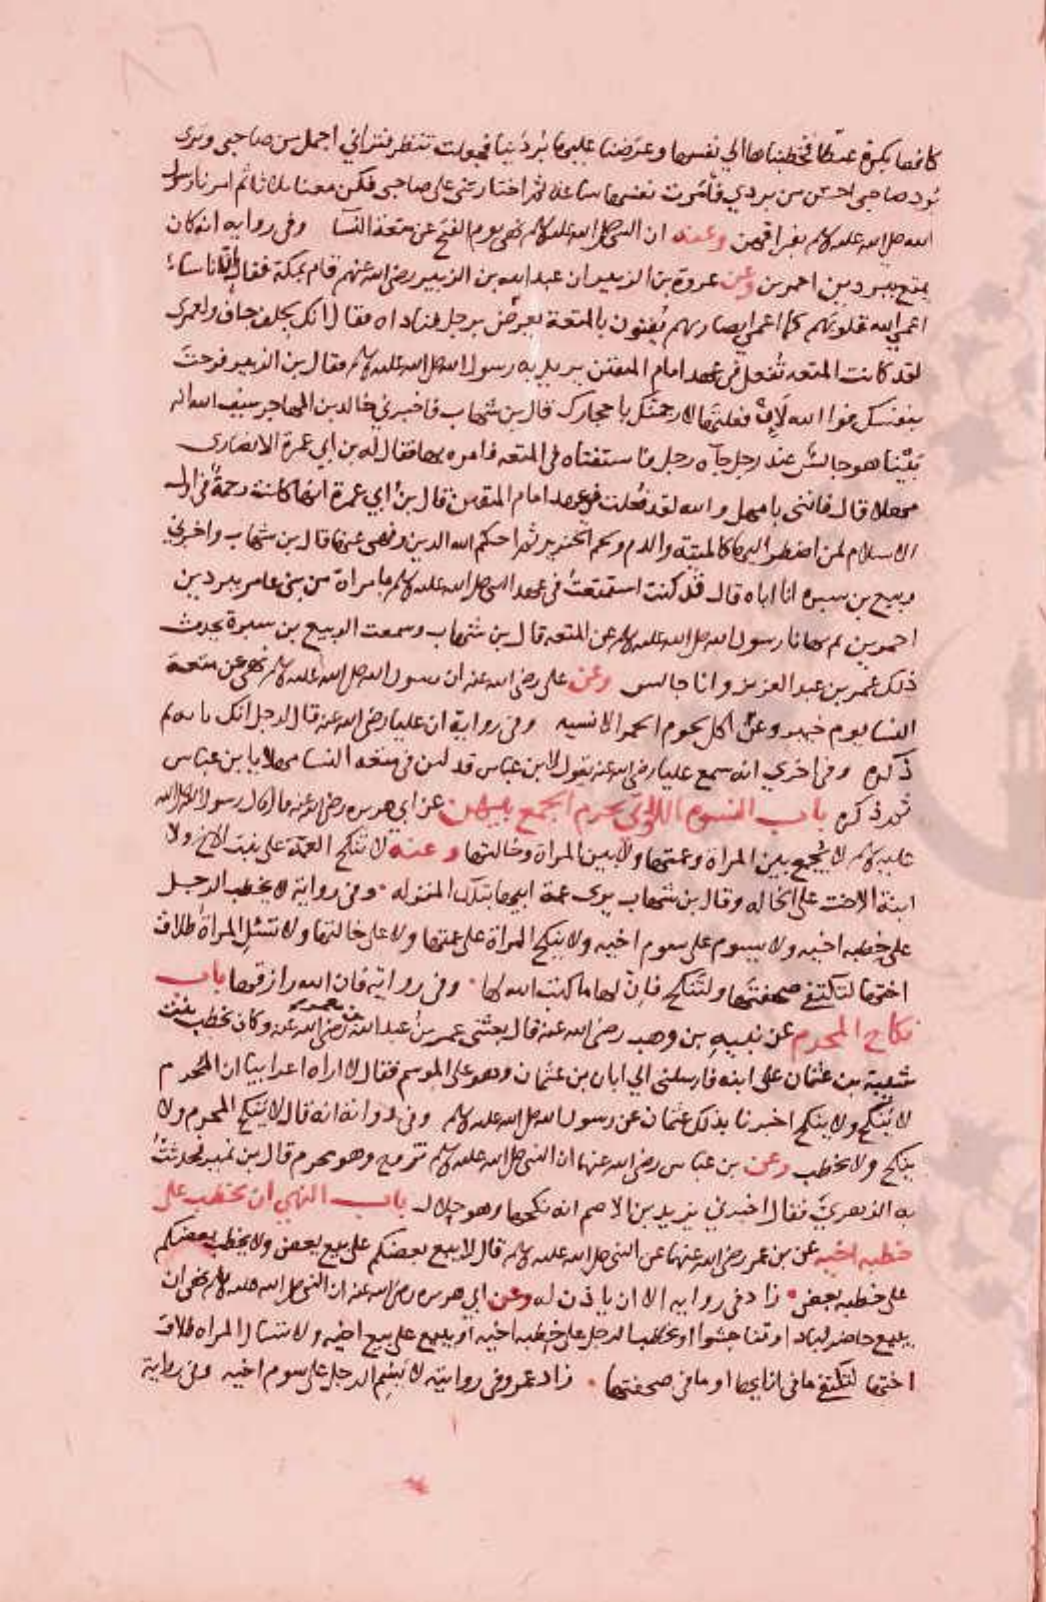 كانها بكرة عيطا فخطبناها الي نفسها وعرضنا عليها بُردَينا فجعلت تنظر فتراني اجمل من صاحبي وترى
بُرد صاحبي احسن من بردي فآمرت نفسها ساعة ثم اختارتني على صاحبي فكن معنا ثلاثا ثم امرنا رسول
الله صلى الله عليه وسلم بفراقهن وعنه ان النبي صلى الله عليه وسلم نهى يوم الفتح عن متعة النسآ وفي رواية انه كان
تمتع ببردين احمرين وعن عروة بن الزبير ان عبد الله بن الزبير رضي الله عنهم قام بمكة فقال ان اناسا
اعمى الله قلوبهم كما اعمى ابصارهم يُفتون بالمتعة يعرض برجل فناداه فقال انك لجلف جاف ولعمري
لقد كانت المتعه تُفعل في عهد امام المتقين يريد به رسول الله صلى الله عليه وسلم فقال بن الزبير فجرب
بنفسك فوا الله لَئِن فعلتها لارجمنك باحجارك قال بن شهاب فاخبرني خالد بن المهاجر سيف الله انه
بَيْنا هو جالس عند رجل جآه رجل فاستفتاه في المتعه فامره بها فقال له بن ابي عمرة الانصاري
مهلا قال فانتى يا مهل والله لقد فُعلت في عهد امام المتقين قال بن أبي عمرة انها كانت رخصة في اول
الاسلام لمن اضطر اليها كالميتة والدم ولحم الخنزير ثم احكم الله الدين ونهى عنها قال بن شهاب واخبرني
ربيع بن سبره ان اباه قال قد كنت استمتعتُ في عهد النبي صلى الله عليه وسلم بامراة من بني عامر ببردين
احمرين ثم نهانا رسول الله صلى الله عليه وسلم عن المتعه قال بن شهاب وسمعت الربيع بن سبرة يحدث
ذلك عمر بن عبد العزيز وانا جالس وعن علي رضي الله عنه ان رسول الله صلى الله عليه وسلم نهى عن متعة
النسا يوم خيبر وعن اكل لحوم الحمر الانسيه وفي رواية ان عليا رضي الله عنه قال لرجل انك تايه ثم
ذكره وفي اخري انه سمع عليا رضي الله عنه يقول لابن عباس قد لين في متعة النسا مهلا يا بن عباس
ثم ذكره باب النسوه اللاتي يحرم الجمع بينهن عن ابي هريره رضي الله عنه قال قال رسول الله صلى الله
عليه وسلم لا يُجمع بين المراة وعمتها ولا بين المراة وخالتها وعنه لا تنكح العمة على بنت الاخ ولا
ابنة الاخت على الخاله وقال بن شهاب نرى عمة ابيها بتلك المنزله وفي رواية لا يخطب الرجل
على خطبه اخيه ولا يسوم على سوم اخيه ولا ينكح المراة على عمتها ولا على خالتها ولا تسئل المراة طلاق
اختها لتكتفئ صحفتها ولتنكح فان لها ما كتب الله لها وفي رواية فان الله رازقها باب
نكاح المحرم عن نبيه بن وهب رضي الله عنه قال بعثني عمر بن عبد الله بن معمر رضي الله عنه وكان يخطب بنت
شيبة بن عثمان على ابنه فارسلني الي ابان بن عثمان وهو على الموسم فقال لا اراه اعرابيا ان المحرم
لا يَنكح ولا ينكح اخبرنا بذلك عثمان عن رسول الله صلى الله عليه وسلم وفي رواية انه قال لا يَنكح المحرم ولا
ينكح ولا يخطب وعن بن عباس رضي الله عنهما ان النبي صلى الله عليه وسلم تزوج وهو محرم قال بن نمير فحدثتُ
به الزهري فقال اخبرني يزيد بن الاصم انه نكحها وهو حلال باب النهي ان يخطب على
خطبه اخيه عن بن عمر رضي الله عنهما عن النبي صلى الله عليه وسلم قال لا يبيع بعضكم على بيع بعض ولا يخطب بعضكم
على خطبه بعض زاد في رواية الا ان ياذن له وعن ابي هريره رضي الله عنه ان النبي صلى الله عليه وسلم نهى ان
يبيع حاضر لباد او تناجشوا او يخطب الرجل على خطبه اخيه او يبيع على بيع اخيه ولا تسال المراه طلاق
اختها لتكتفئ ما في انايها او ما في صحفتها زاد عمرو في روايته لا يَسُم الرجل على سوم اخيه وفي رواية